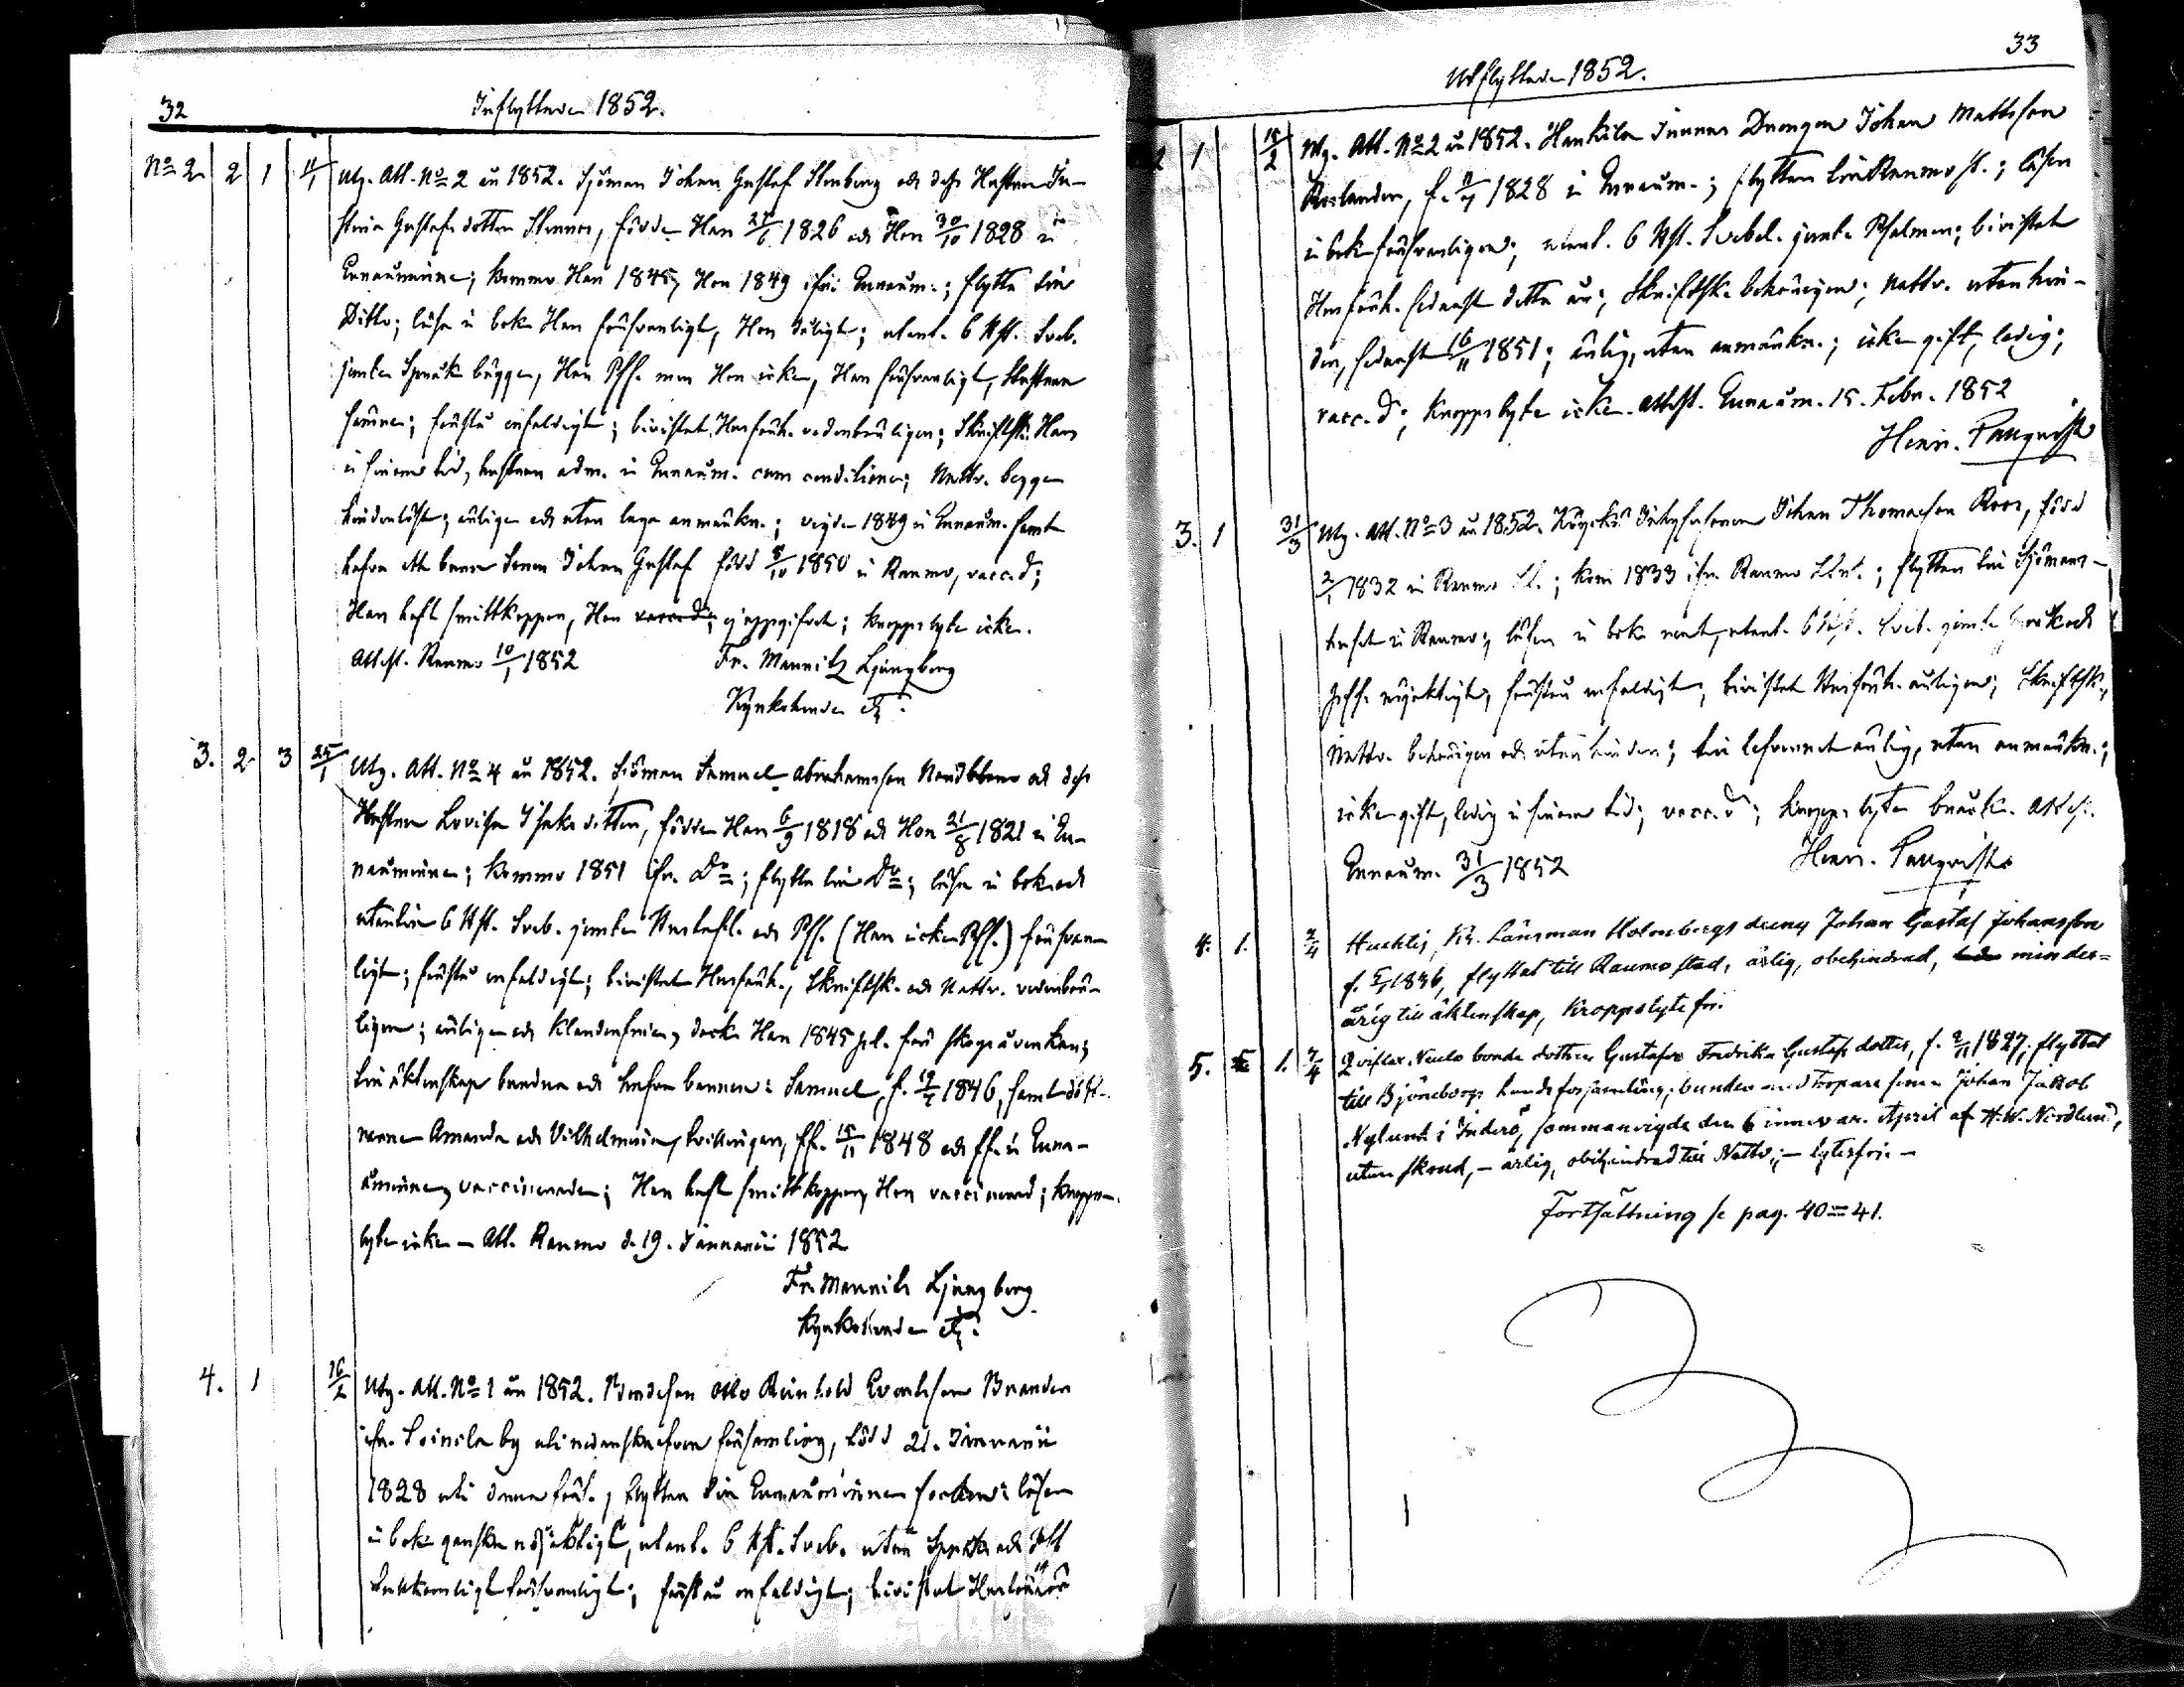 32
Inflyttade 1852.
No 2. 2 1 11/1 Utg. Att. No 2 år 1852. Sjöman Johan Gustaf Stenberg och dess Hustru
Gustafsdotter, födde Han 1826 och Hon 30/10 1828 i
Euraåminne; kommo Han 1845, Hon 1849 ifrån Euraåm.; flytta till
Ditto; läsa i bok Han försvarligt, Hon dåligt; utant. 6 Hst. Sveb.
jemte Språk bägge, Han Pss. men Hon icke, Han försvarligt, Hustrun
sämre; förstå enfaldigt; bivistat Husförh. vederbörligen; Skriftsk. Han
i sinom tid, hustrun adm. i Euraåm. cum conditione; Nattv. begge
hinderlöst; ärliga och utan laga anmärkn.; vigde 1849 i Euraåm. samt
hafva ett barn Sonen Johan Gustaf född 5/10 1850 i Raumo, vacc.d;
Han haft smittkoppor, Hon ej uppgifvet; kroppslyte icke.
Attest. Raumo 10/1 1852 Fr. Mauritz Ljungberg
Kyrkoherde
3. 2 3 25/1 Utg. Att. No 4 år 1852. Sjöman Samuel Abrahamsson och dess
Hustru Lovisa Isaksdotter, födde Han 6/9 1818 och Hon 21/8 1821 i Eu-
raåminne; kommo 1851 ifr. Do; flytta till Do; läsa i bok och
utantill 6 Hst. Sveb. jemte Hustafl. och Pss. (Han icke Pss.) försvar-
ligt; förstå enfaldigt; bivistat Husförh., Skriftsk. och Nattv. vederbör-
ligen; ärliga och klanderfria, dock Han 1845 pl. för skogsåverkan;
till äktenskap bundna och hafva barnen: Samuel, f. 1846, samt dött-
rarna Amanda och Vilhelmina, tvillingar, ff. 15/11 1848 och ff. i Eura-
åminne, vaccinerade; Han haft smittkoppor, Hon vaccinerad; kropps-
lyte icke – Att. Raumo d. 19. Januarii 1852
Fr. Mauritz Ljungberg
Kyrkoherde
4. 1 16/2 Utg. Att. No 1 år 1852. Bondeson Otto Reinhold Evertsson Brander
ifr. Soinila by uti nedanskrefven församling, född 21. Januarii
1828 uti denna förs., flyttar till Euraåminne socken: läser
i bok ganska nöjaktigt, utant. 6 Hst. Sveb. utan Språk och Pss
försvarligt; förstår enfaldigt; bivistat Husförhör
33
Utflyttade 1852.
2 1 15/2 Utg. Att. No 2 år 1852. Hankila Innanes Drängen Johan Mattsson
Roslander, f. 1828 i Euraåm.; flyttar till Raumo st.; läser
i bok försvarligen; utant. 6 Hst. Svebel. jemte Psalmer; bivistat
Husförh. sednast detta år; Skriftsk. behörigen; Nattv. utan hin-
der, sednast 16/11 1851; ärlig, utan anmärkn.; icke gift, ledig;
vacc.d; kroppslyte icke. Attest. Euraåm. 15. Febr. 1852
Henr. Pauqvist
3. 1 31/3 Utg. Att. No 3 år 1852. Inhyseson Johan Thomasson Roos, född
2/1 1832 i Raumo St.; kom 1833 ifr. Raumo Ldsf.; flyttar till Sjömans-
huset i Raumo; läser i bok rent, utant. 6 Hst. Sveb. jemte Språk och
Pss. nöjaktigt, förstår enfaldigt, bivistat Husförh. årligen; Skriftsk.,
Nattv. behörigen och utan hinder; till lefvernet ärlig, utan anmärkn.;
icke gift, ledig i sinom tid; vacc.d; kroppslyte Attest.
Euraåm. 31/3 1852 Henr. Pauqvist
4. 1. 2/4 Huchtis, Kr. Länsman Holmbergs dräng Johan Gustaf Johansson
f. 1836, flyttat till Raumo stad, ärlig, obehindrad, minder-
årig till äktenskap, kroppslyte fri.
5. 1. 7/4 bonde dottren Gustafva Fredrika Gustafsdotter, f. 2/11 1827, flyttat
till Björneborgs landsförsamling, bunden med Torpare sonen Johan Jakob
Nylund i Inderö, sammanvigde den 6 innevar. April af H.W. Nordlund,
utan skrud, – ärlig, obehindrad till Nattv.; – lytesfri –
Fortsättning se pag. 40–41.